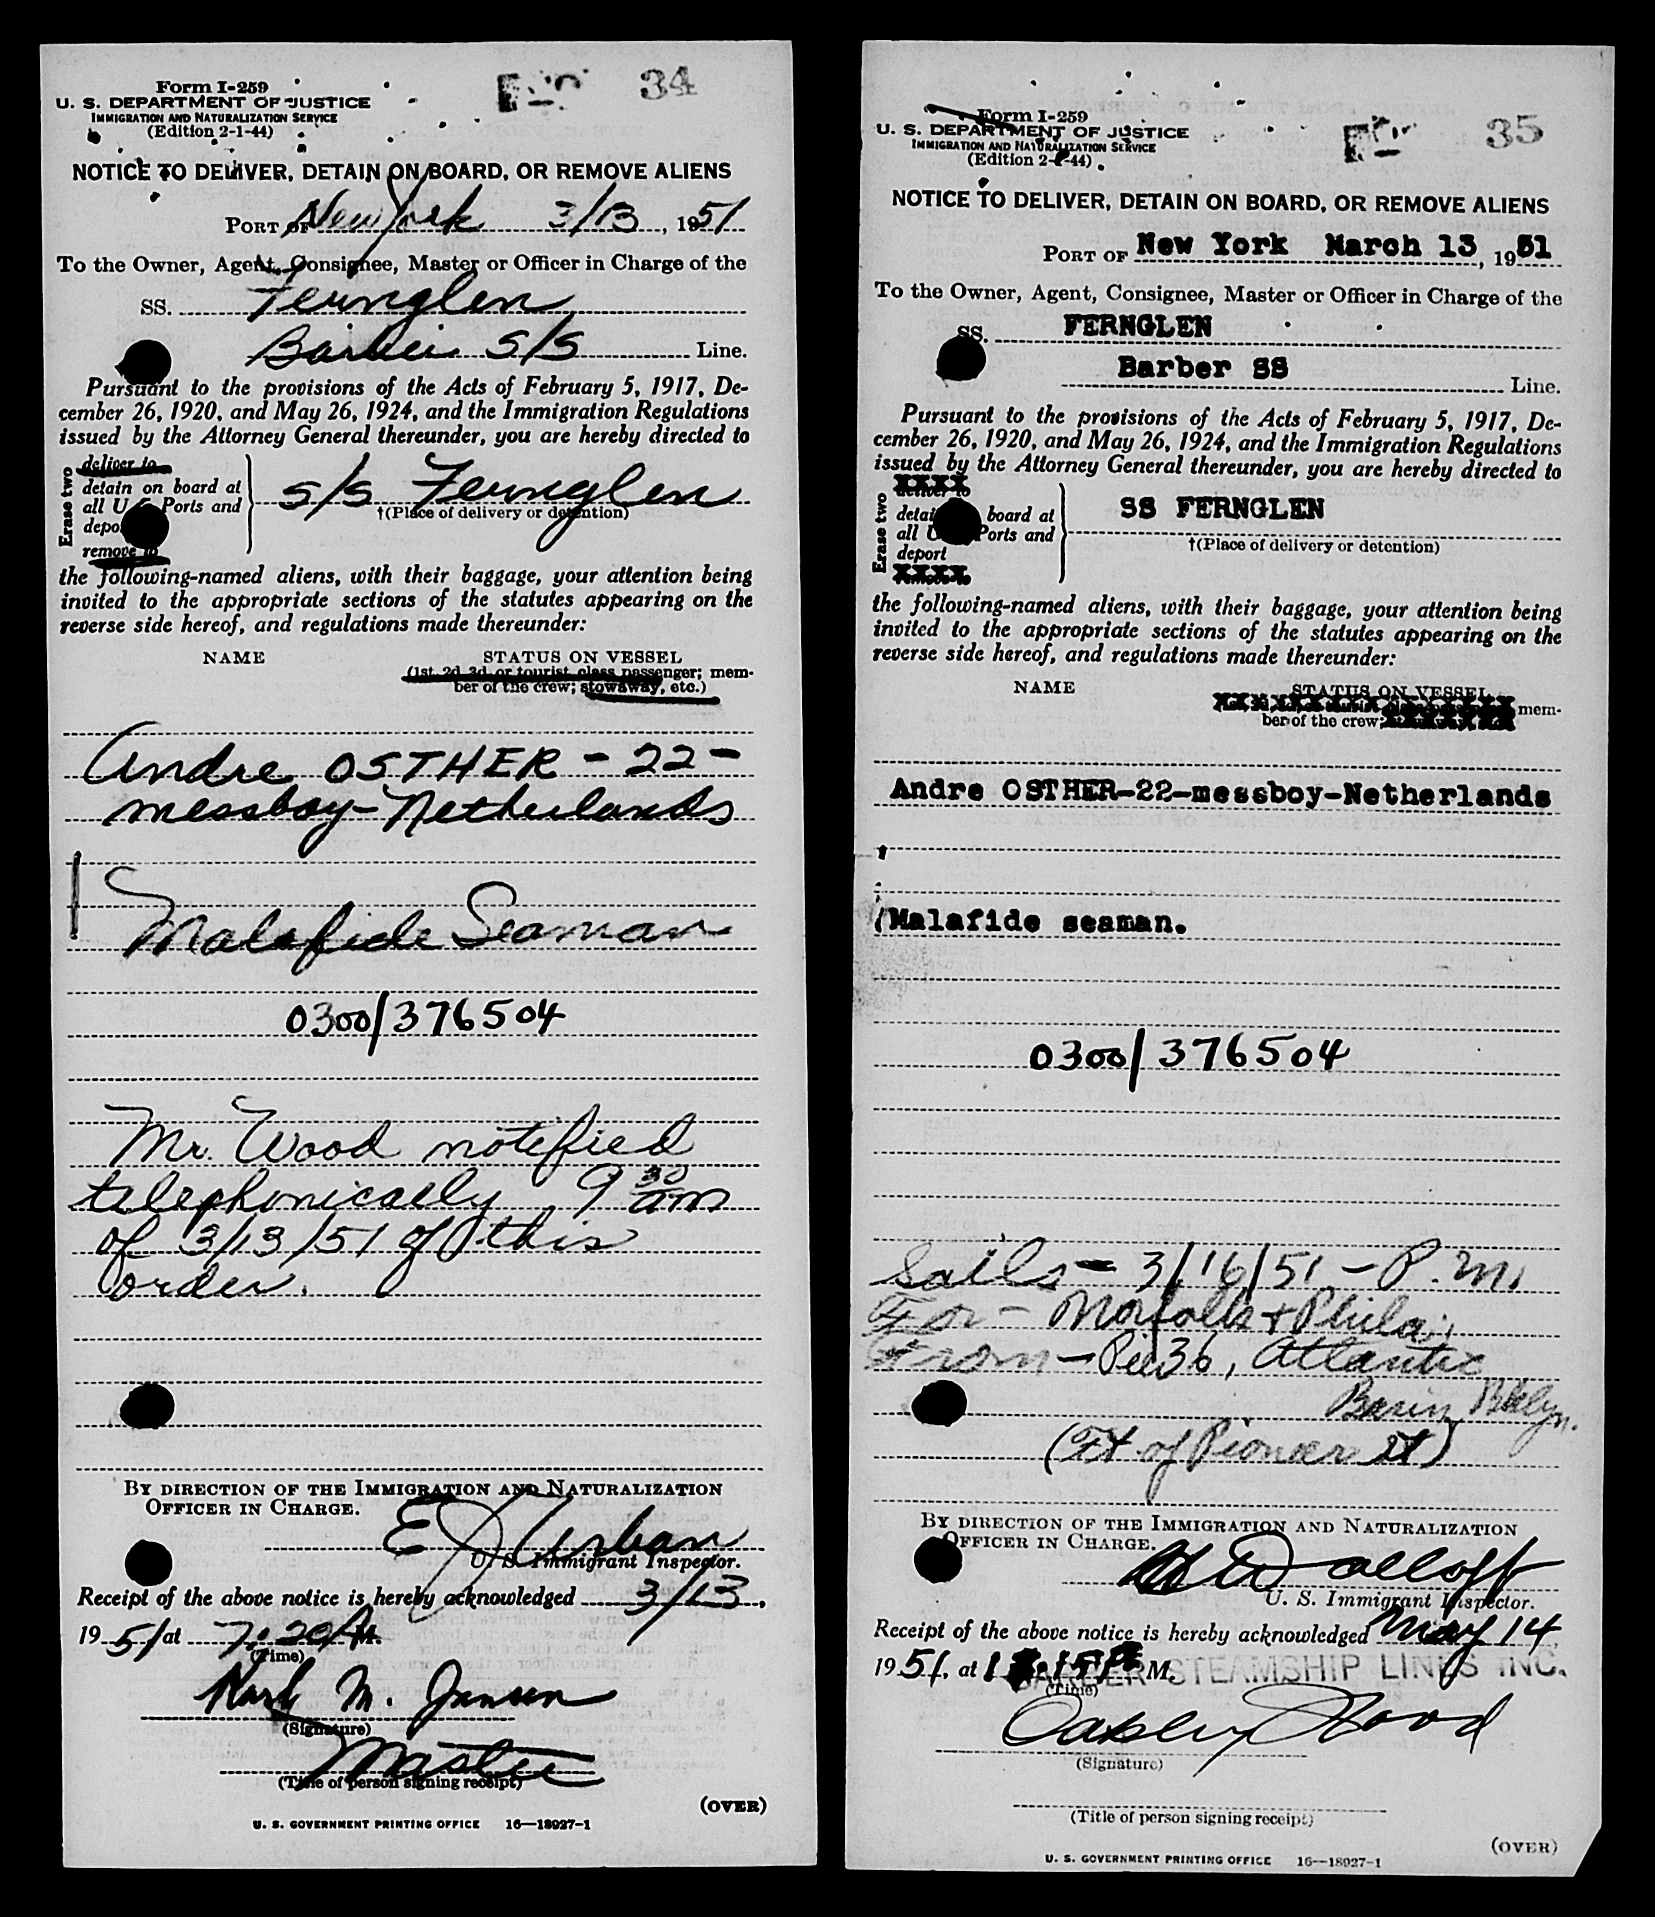 34
Form I-259
U. S. DEPARTMENT OF JUSTICE
IMMIGRATION AND NATURALIZATION SERVICE
(Edition 2-1-44)
NOTICE TO DELIVER, DETAIN ON BOARD, OR REMOVE ALIENS
PORT OF New York 3/13, 1951
To the Owner, Agent, Consignee, Master or Officer in Charge of the
SS. Fernglen
Barber S/S Line.
Pursuant to the provisions of the Acts of February 5, 1917, De-
cember 26, 1920, and May 26, 1924, and the Immigration Regulations
issued by the Attorney General thereunder, you are hereby directed to
Erase two
deliver to
detain on board at
all U. S. Ports and
deport
remove to
S/S Fernglen
†(Place of delivery or detention)
the following-named aliens, with their baggage, your attention being
invited to the appropriate sections of the statutes appearing on the
reverse side hereof, and regulations made thereunder:
NAME STATUS ON VESSEL
(1st, 2d, 3d, or tourist class passenger; mem-
ber of the crew; stowaway, etc.)
Andre OSTHER - 22 -
messboy - Netherlands
Malafide Seaman
0300/376504
Mr. Wood notified
telephonically 9 30 am
of 3/13/51 of this
order.
BY DIRECTION OF THE IMMIGRATION AND NATURALIZATION
OFFICER IN CHARGE.
E J Urban
U. S. Immigrant Inspector.
Receipt of the above notice is hereby acknowledged 3/13,
1951 at 7:20 A M.
(Time)
M. Jensen
(Signature)
Master
(Title of person signing receipt)
(OVER)
U. S. GOVERNMENT PRINTING OFFICE 16—18927-1
35
Form I-259
U. S. DEPARTMENT OF JUSTICE
IMMIGRATION AND NATURALIZATION SERVICE
(Edition 2-1-44)
NOTICE TO DELIVER, DETAIN ON BOARD, OR REMOVE ALIENS
PORT OF New York March 13, 1951
To the Owner, Agent, Consignee, Master or Officer in Charge of the
SS. FERNGLEN
Barber SS Line.
Pursuant to the provisions of the Acts of February 5, 1917, De-
cember 26, 1920, and May 26, 1924, and the Immigration Regulations
issued by the Attorney General thereunder, you are hereby directed to
Erase two
deliver to
detain on board at
all U. S. Ports and
deport
remove to
SS FERNGLEN
†(Place of delivery or detention)
the following-named aliens, with their baggage, your attention being
invited to the appropriate sections of the statutes appearing on the
reverse side hereof, and regulations made thereunder:
NAME STATUS ON VESSEL
mem-
ber of the crew;
Andre OSTHER-22-messboy-Netherlands
Malafide seaman.
0300/376504
Sails - 3/16/51 - P.M.
For - Norfolk + Phila.
From - Pier 36, Atlantic
Basin, Bklyn.
(Ft of Pioneer St)
BY DIRECTION OF THE IMMIGRATION AND NATURALIZATION
OFFICER IN CHARGE.
U. S. Immigrant Inspector.
Receipt of the above notice is hereby acknowledged May 14
1951, at M.
BARBER STEAMSHIP LINES INC.
(Time)
Oakley Wood
(Signature)
(Title of person signing receipt)
(OVER)
U. S. GOVERNMENT PRINTING OFFICE 16—18927-1